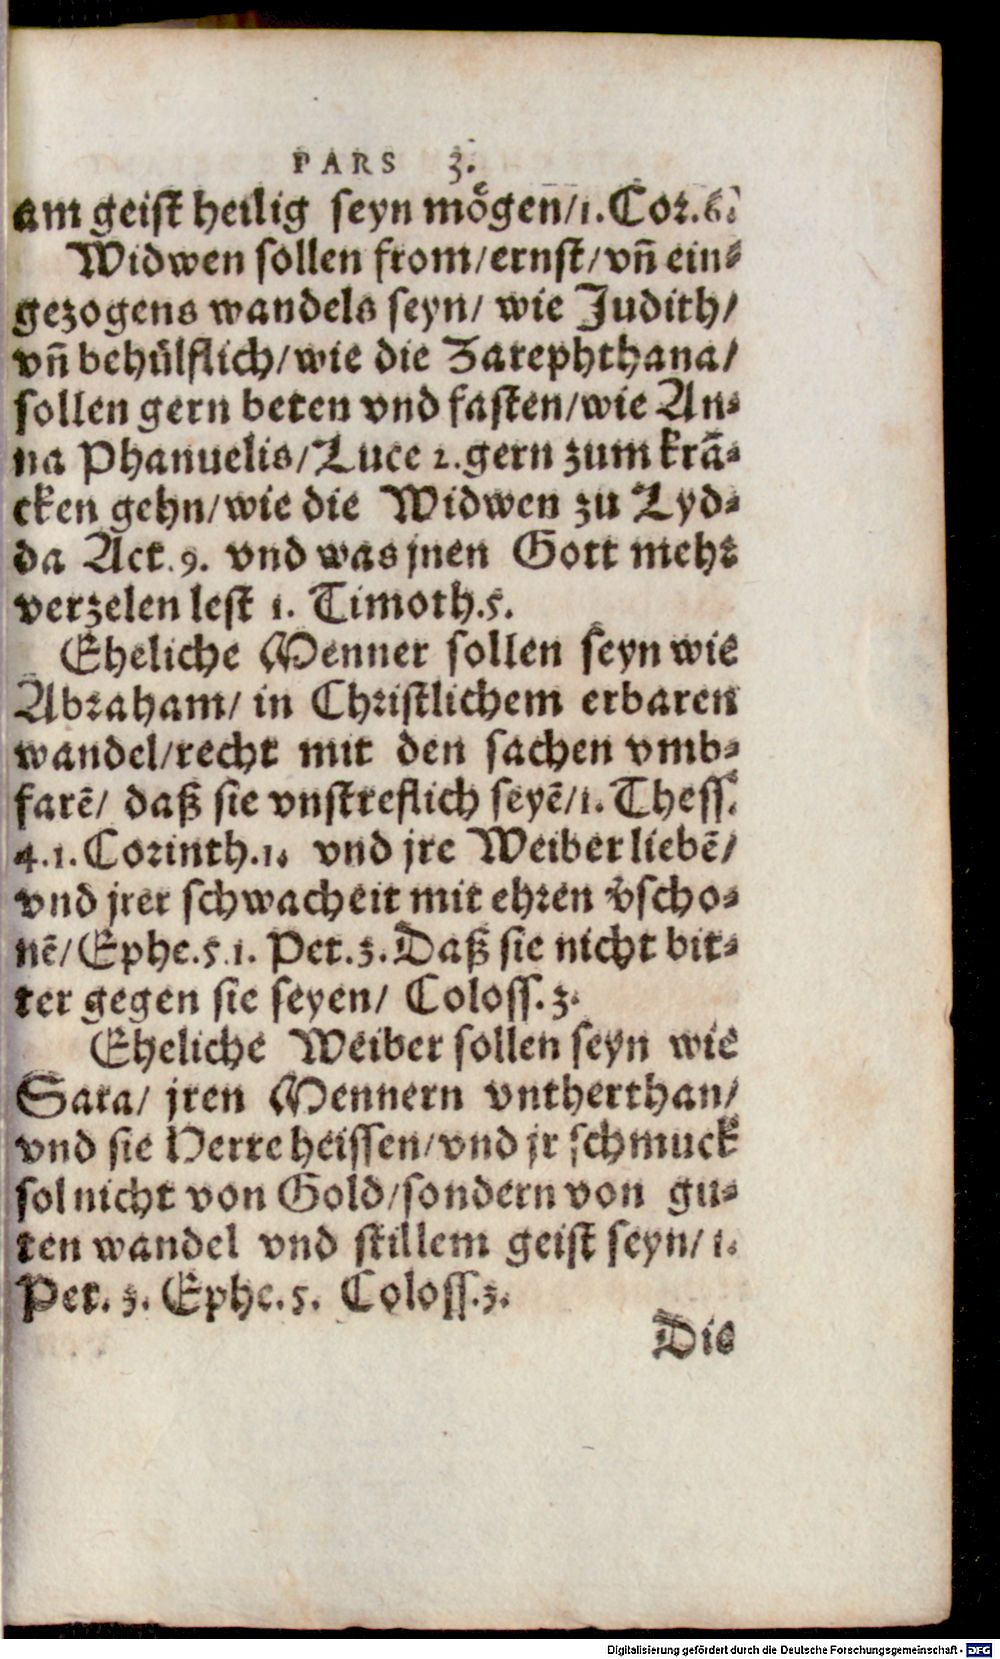 PARS 3.
am geist heilig seyn moͤgen/1. Cor. 6.
Widwen sollen from/ernst/vn̄ ein⸗
gezogens wandels seyn/ wie Judith/
vn̄ behuͤlflich/wie die Zarephthana/
sollen gern beten vnd fasten/wie An⸗
na Phanuelis/Luce 2. gern zum krā⸗
cken gehn/wie die Widwen zu Lyd⸗
da Act. 9. vnd was jnen Gott mehr
verzelen lest 1. Timoth. 5.
Eheliche Menner sollen seyn wie
Abraham/ in Christlichem erbaren
wandel/recht mit den sachen vmb⸗
farē/ daß sie vnstreflich seyē/1. Thess.
4. 1. Corinth. 1. vnd jre Weiber liebē/
vnd jrer schwacheit mit ehren v̄scho⸗
nē/Ephe. 5. 1. Pet. 3. Daß sie nicht bit⸗
ter gegen sie seyen/ Coloss. 3.
Eheliche Weiber sollen seyn wie
Sara/ jren Mennern vntherthan/
vnd sie Herre heissen/vnd jr schmuck
sol nicht von Gold/sondern von gu⸗
ten wandel vnd stillem geist seyn/ 1.
Pet. 3. Ephe. 5. Coloss. 3.
Die
Digitalisierung gefördert durch die Deutsche Forschungsgemeinschaft - DFG